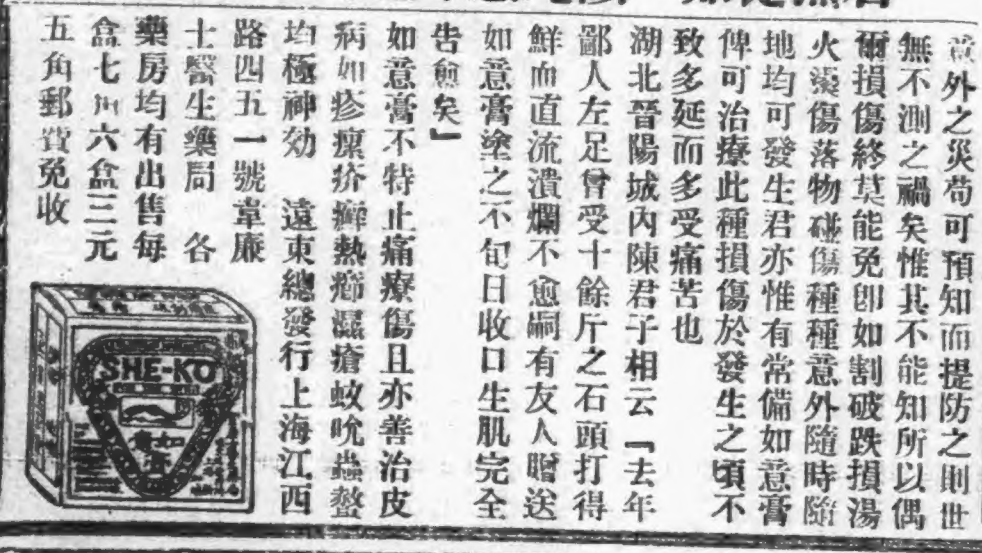 意外之災苟可預知而提防之則世
無不測之禍矣惟其不能知所以偶
爾損傷終莫能免卽如割破跌損湯
火燙傷落物碰傷種種意外隨時隨
地均可發生君亦惟有常備如意膏
俾可治療此種損傷於發生之頃不
致多延而多受痛苦也
湖北晉陽城內陳君子相云『去年
鄙人左足曾受十餘斤之石頭打得
鮮血直流潰爛不愈嗣有友人贈送
如意膏塗之不旬日收口生肌完全
告愈矣』
如意膏不特止痛療傷且亦善治皮
病如疹瘰疥癬熱癤濕瘡蚊吮蟲螫
均極神効 遠東總發行上海江西
路四五一號韋廉
士醫生藥局 各
藥房均有出售每
盒七角六盒三元
五角郵費免收
SHE-KO
如意膏